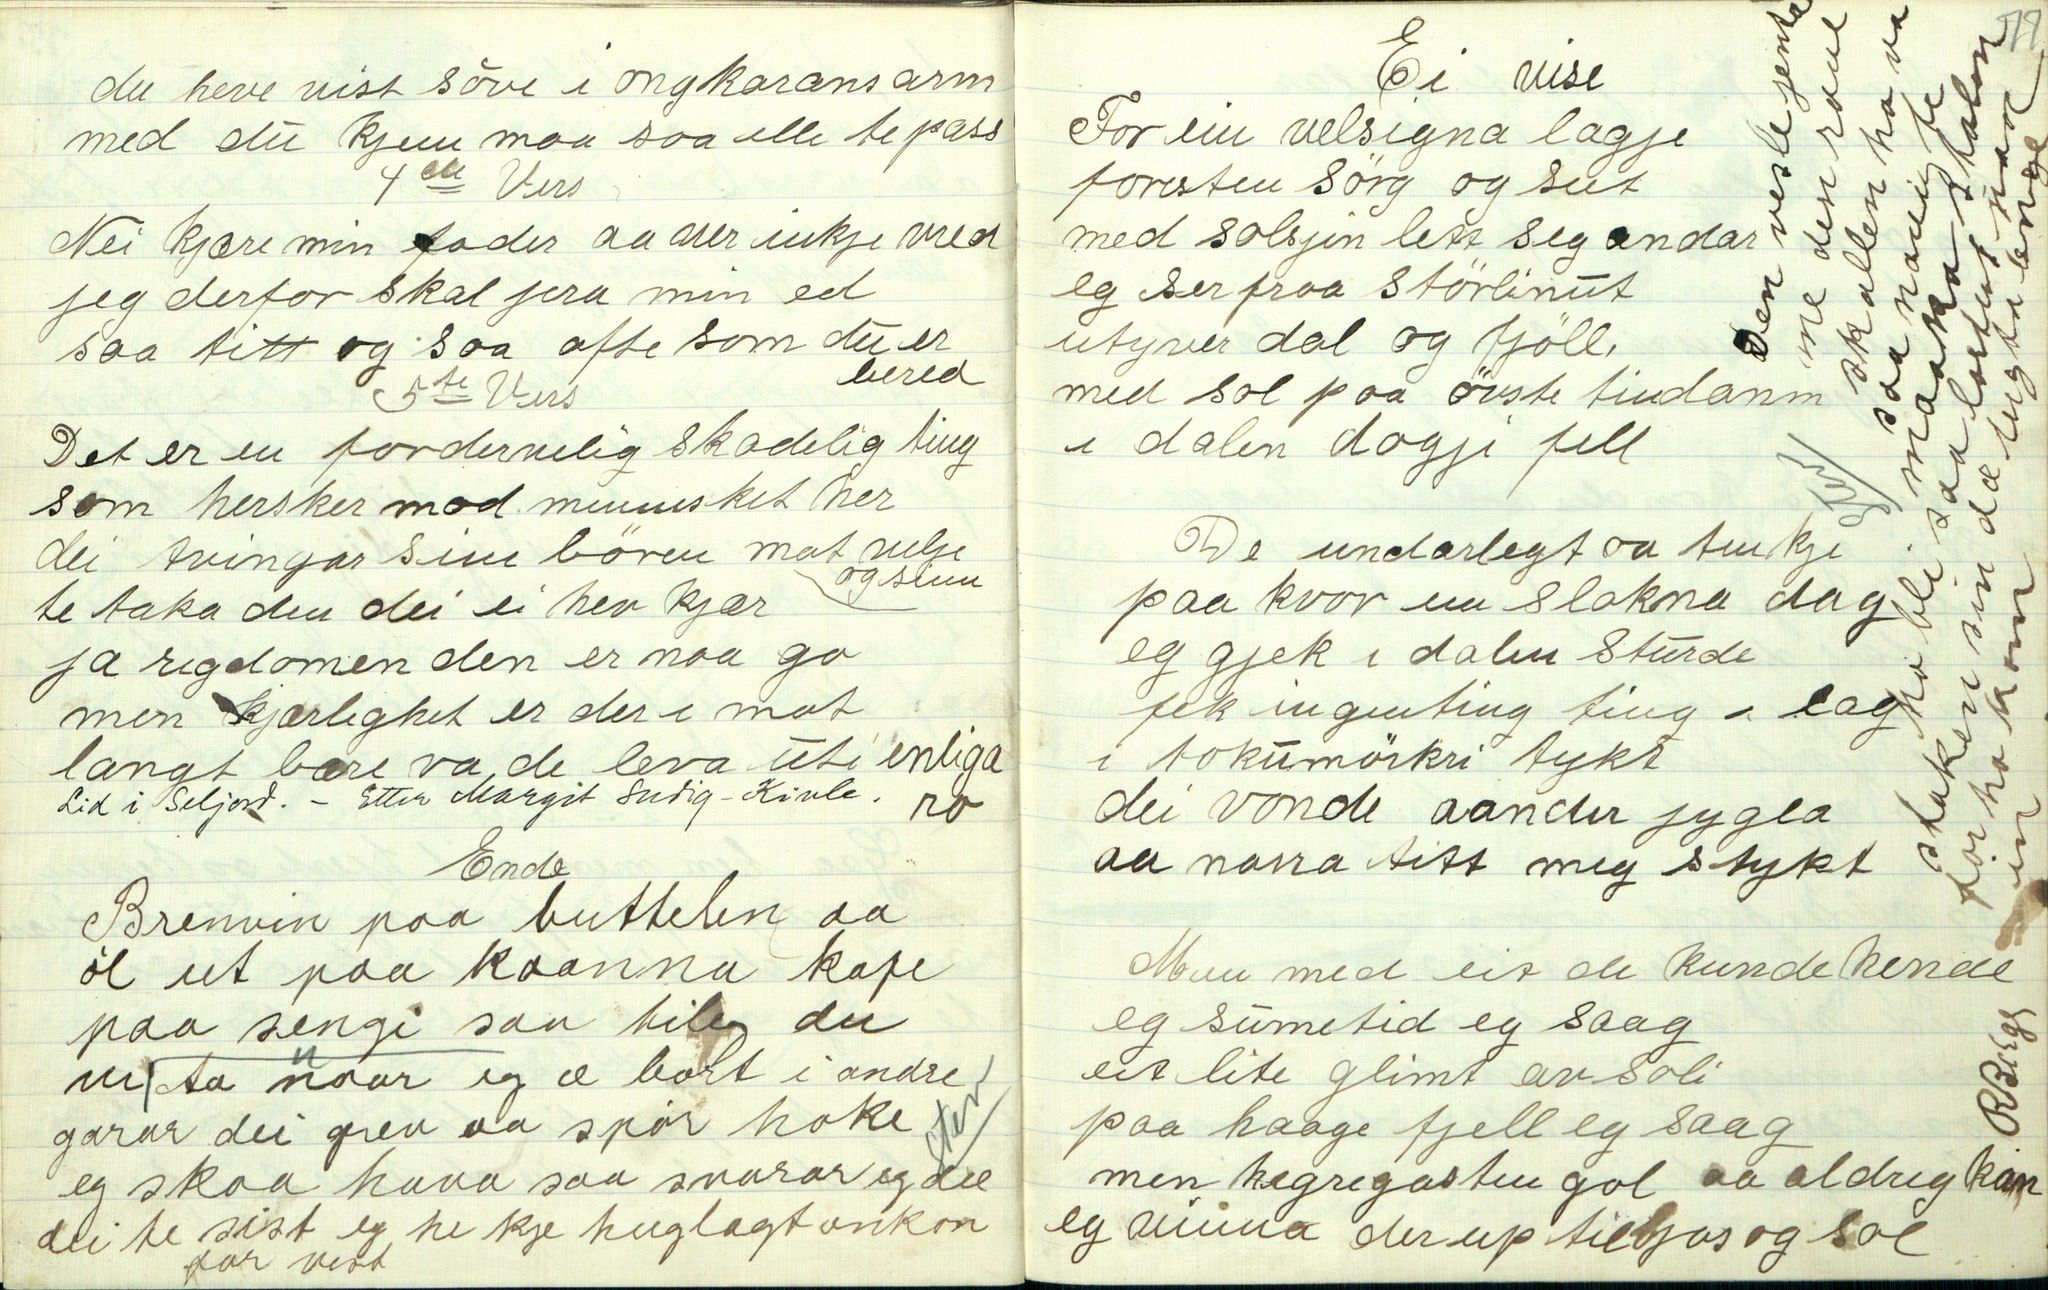 du heve vist söve i ongkarans arm
med du kjem maa saa ille te pass
4de Vers
Nei kjære min fader aa ver inkje vred
jeg derfor skal jera min ed
saa titt og saa ofte som du er
bered
5te Vers
Det er en fordervelig skadelig ting
som hersker mod mennesket her
dei tvingar sine bören mot vilje
og sinn
te taka den dei ei hev kjær
ja rigdomen den er naa go
men kjærligket er der i mot
langt bære va de leva uti enliga
ro
Lid i Seljord. – Etter Margit Kivle.
Ende
Brenvin paa buttelen aa
öl ut paa kaanna kape
paa sengi saa kile du
vita naar eg æ bort i andre
garar dei grev aa spör hoke
eg skaa hava saa svarar eg dei
dei te sist eg he kje huglagt onkon
for visst
Stev
77
Ei vise
For ein velsigna lagje
foresten sörg og sut
med solsjin lett seg andar
eg ser fraa störlinut
utyver dal og fjöll
med sol paa övste tindann
i dalen dogji fell
De underlegt aa tenkje
paa kvor en slokna dag
eg gjek i dalen sturde
fek ingenting ting i lag
i tokumörkri tykt
dei vonde aander jygla
aa narra titt meg stykt
Men med eit de kunde hende
eg sumetid eg saag
eit lite glimt av soli
paa haage fjell eg saag
men hegregasten gol aa aldrig kan
eg vinna der up til ljos og sol
Stev
Den vesle jenta
me den raue
skallen ho va
saa narug te
maaka stalen
ho bli saa lastug naar
staken sin dæ lugta lenge
för ho kom inn